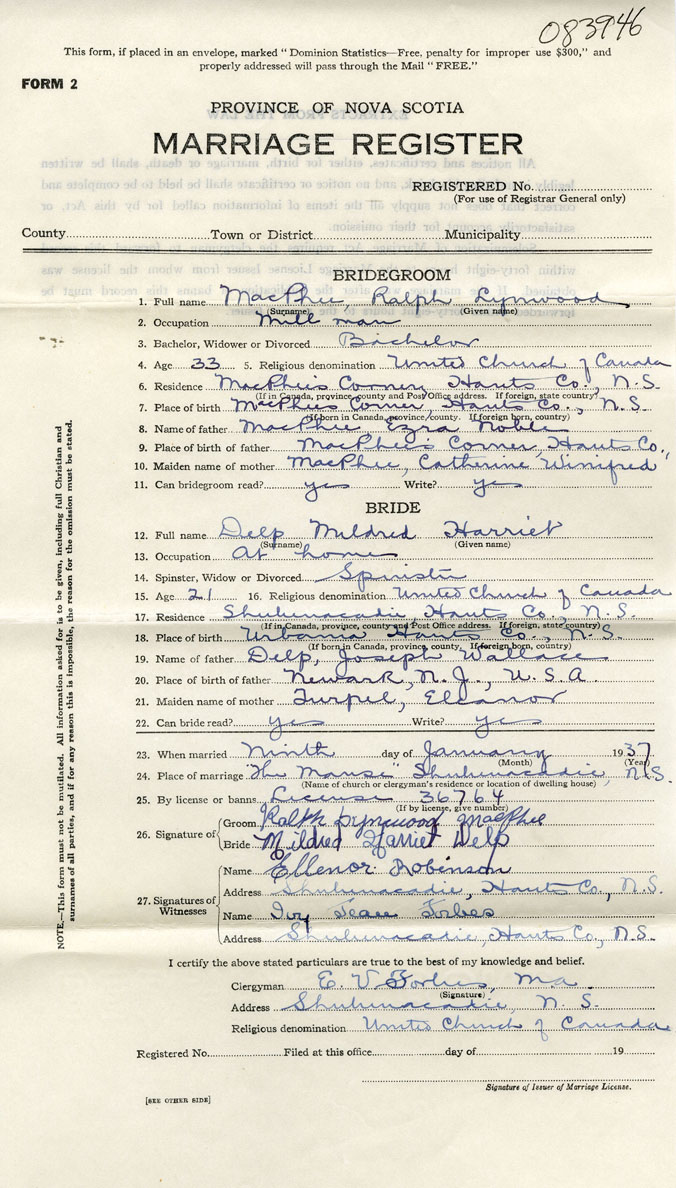 083946
This form, if placed in an envelope, marked "Dominion Statistics—Free, penalty for improper use $300," and
properly addressed will pass through the Mail "FREE."
FORM 2
PROVINCE OF NOVA SCOTIA
MARRIAGE REGISTER
REGISTERED No.
(For use of Registrar General only)
County Town or District Municipality
BRIDEGROOM
1. Full name MacPhee, Ralph Lynwood
(Surname) (Given name)
2. Occupation Mill man
3. Bachelor, Widower or Divorced Bachelor
4. Age 33 5. Religious denomination United Church of Canada
6. Residence MacPhee's Corner, Hants Co., N.S.
(If in Canada, province, county and Post Office address. If foreign, state country)
7. Place of birth MacPhees Corner, Hants Co., N.S.
(If born in Canada, province/county. If foreign born, country)
8. Name of father MacPhee Ezra Noble
9. Place of birth of father MacPhee's Corner, Hants Co.,
10. Maiden name of mother MacPhee, Catherine Winifred
11. Can bridegroom read? yes Write? yes
BRIDE
12. Full name Delp Mildred Harriet
(Surname) (Given name)
13. Occupation At home
14. Spinster, Widow or Divorced Spinster
15. Age 21 16. Religious denomination United Church of Canada
17. Residence Shubenacadie, Hants Co., N.S.
(If in Canada, province, county and Post Office address. If foreign, state country)
18. Place of birth Urbania Hants Co., N.S.
(If born in Canada, province, county. If foreign born, country)
19. Name of father Delp, Joseph Wallace
20. Place of birth of father Newark, N.J., U.S.A.
21. Maiden name of mother Turpel, Eleanor
22. Can bride read? yes Write? yes
23. When married Ninth day of January 1937
(Month) (Year)
24. Place of marriage "The Manse" Shubenacadie, N.S.
(Name of church or clergyman's residence or location of dwelling house)
25. By license or banns License 36764
(If by license, give number)
26. Signature of Groom Ralph Lynwood MacPhee
Bride Mildred Harriet Delp
27. Signatures of Witnesses
Name Ellenor Robinson
Address Shubenacadie, Hants Co., N.S.
Name Ivy Jean Forbes
Address Shubenacadie, Hants Co., N.S.
I certify the above stated particulars are true to the best of my knowledge and belief.
Clergyman E. V. Forbes, M.A.
(Signature)
Address Shubenacadie, N. S.
Religious denomination United Church of Canada
Registered No. Filed at this office day of 19
Signature of Issuer of Marriage License.
[SEE OTHER SIDE]
NOTE.—This form must not be mutilated. All information asked for is to be given, including full Christian and
surnames of all parties, and if for any reason this is impossible, the reason for the omission must be stated.